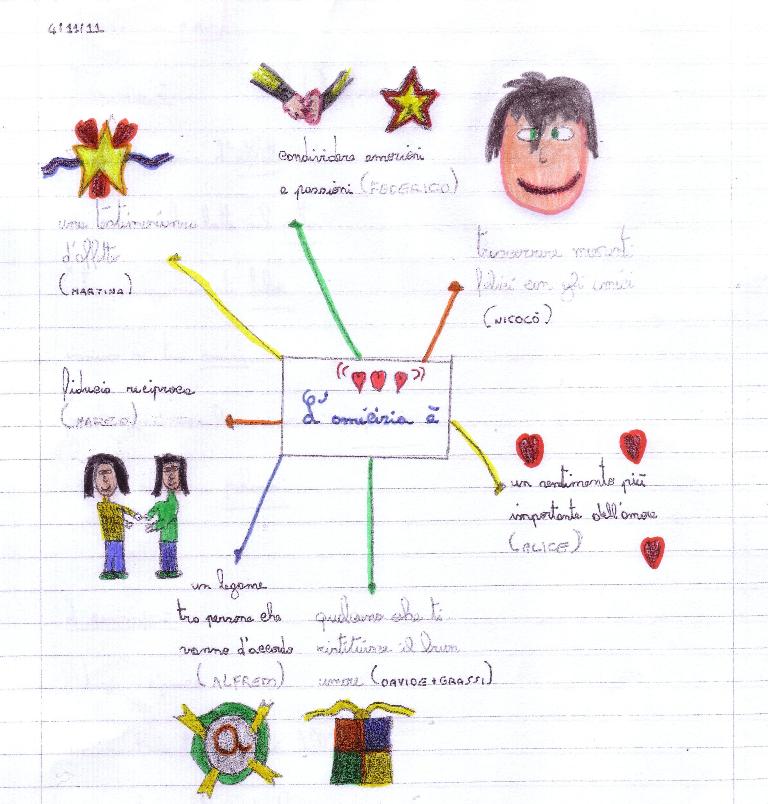 4/11/11
condividere emozioni
e passioni (FEDERICO)
una testimonianza
d'affetto
(MARTINA)
trascorrere momenti
felici con gli amici
(NICOCÒ)
fiducia reciproca
(MARCO)
L'amicizia è
un sentimento più
importante dell'amore
(ALICE)
un legame
tra persone che
vanno d'accordo
(ALFREDO)
qualcuno che ti
restituisce il buon
umore (DAVIDE + GRASSI)
a